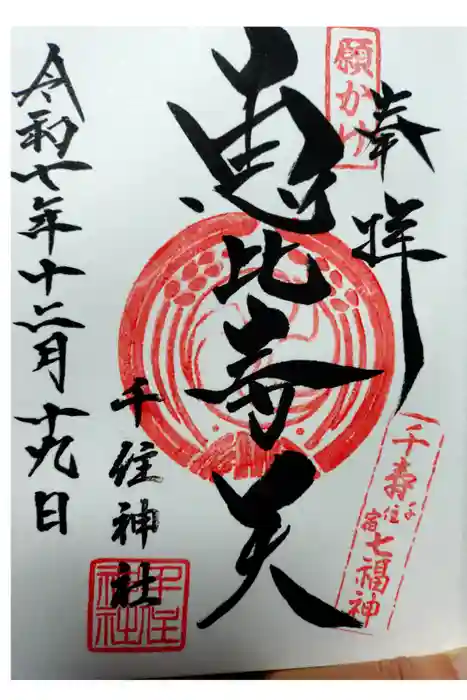 願かけ
奉拝
恵比寿天
千寿七福神
千住宿
千住神社
令和七年十二月十九日
千住神社